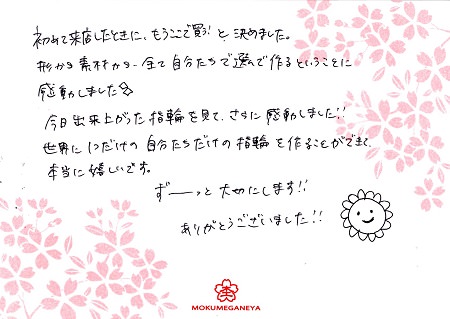 初めて来店したときに、もうここで買う!と決めました。
形から素材から、全て自分たちで選んで作るということに
感動しました
今日出来上がった指輪を見て、さらに感動しました!!
世界に1つだけの自分たちだけの指輪を作ることができて、
本当に嬉しいです。
ずーーっと大切にします!!
ありがとうございました!!
MOKUMEGANEYA